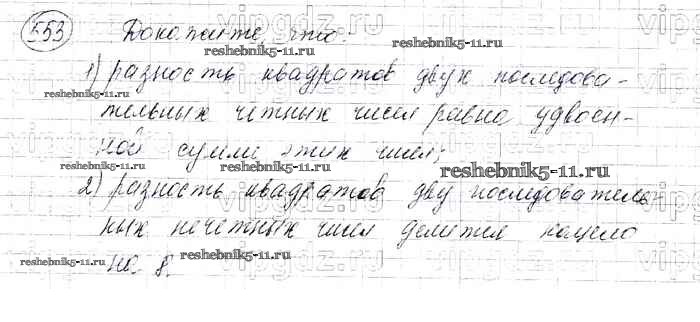 553 Докажите, что:
1) разность квадратов двух последова-
тельных четных чисел равна удвоен-
ной сумме этих чисел;
2) разность квадратов дву последователь-
ных нечетных чисел делится нацело
на 8.
reshebnik5-11.ru
reshebnik5-11.ru
reshebnik5-11.ru
reshebnik5-11.ru
reshebnik5-11.ru
reshebnik5-11.ru
reshebnik5-11.ru
reshebnik5-11.ru
vipgdz.ru
vipgdz.ru
vipgdz.ru
vipgdz.ru